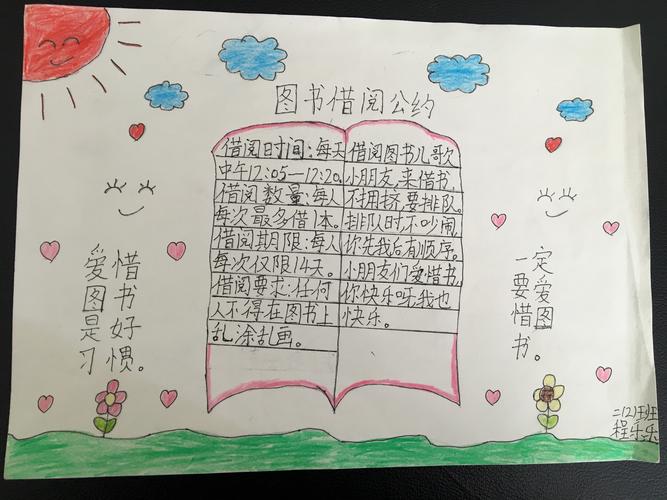 图书借阅公约
借阅时间:每天
中午12:05—12:20。
借阅数量:每人
每次最多借1本。
借阅期限:每人
每次仅限14天。
借阅要求:任何
人不得在图书上
乱涂乱画。
借阅图书儿歌
小朋友,来借书,
不拥挤,要排队。
排队时,不吵闹,
你先我后有顺序。
小朋友们爱惜书,
你快乐呀,我也
快乐。
爱惜
图书
是好
习惯。
一定
要爱
惜图
书。
二(2)班
程乐乐